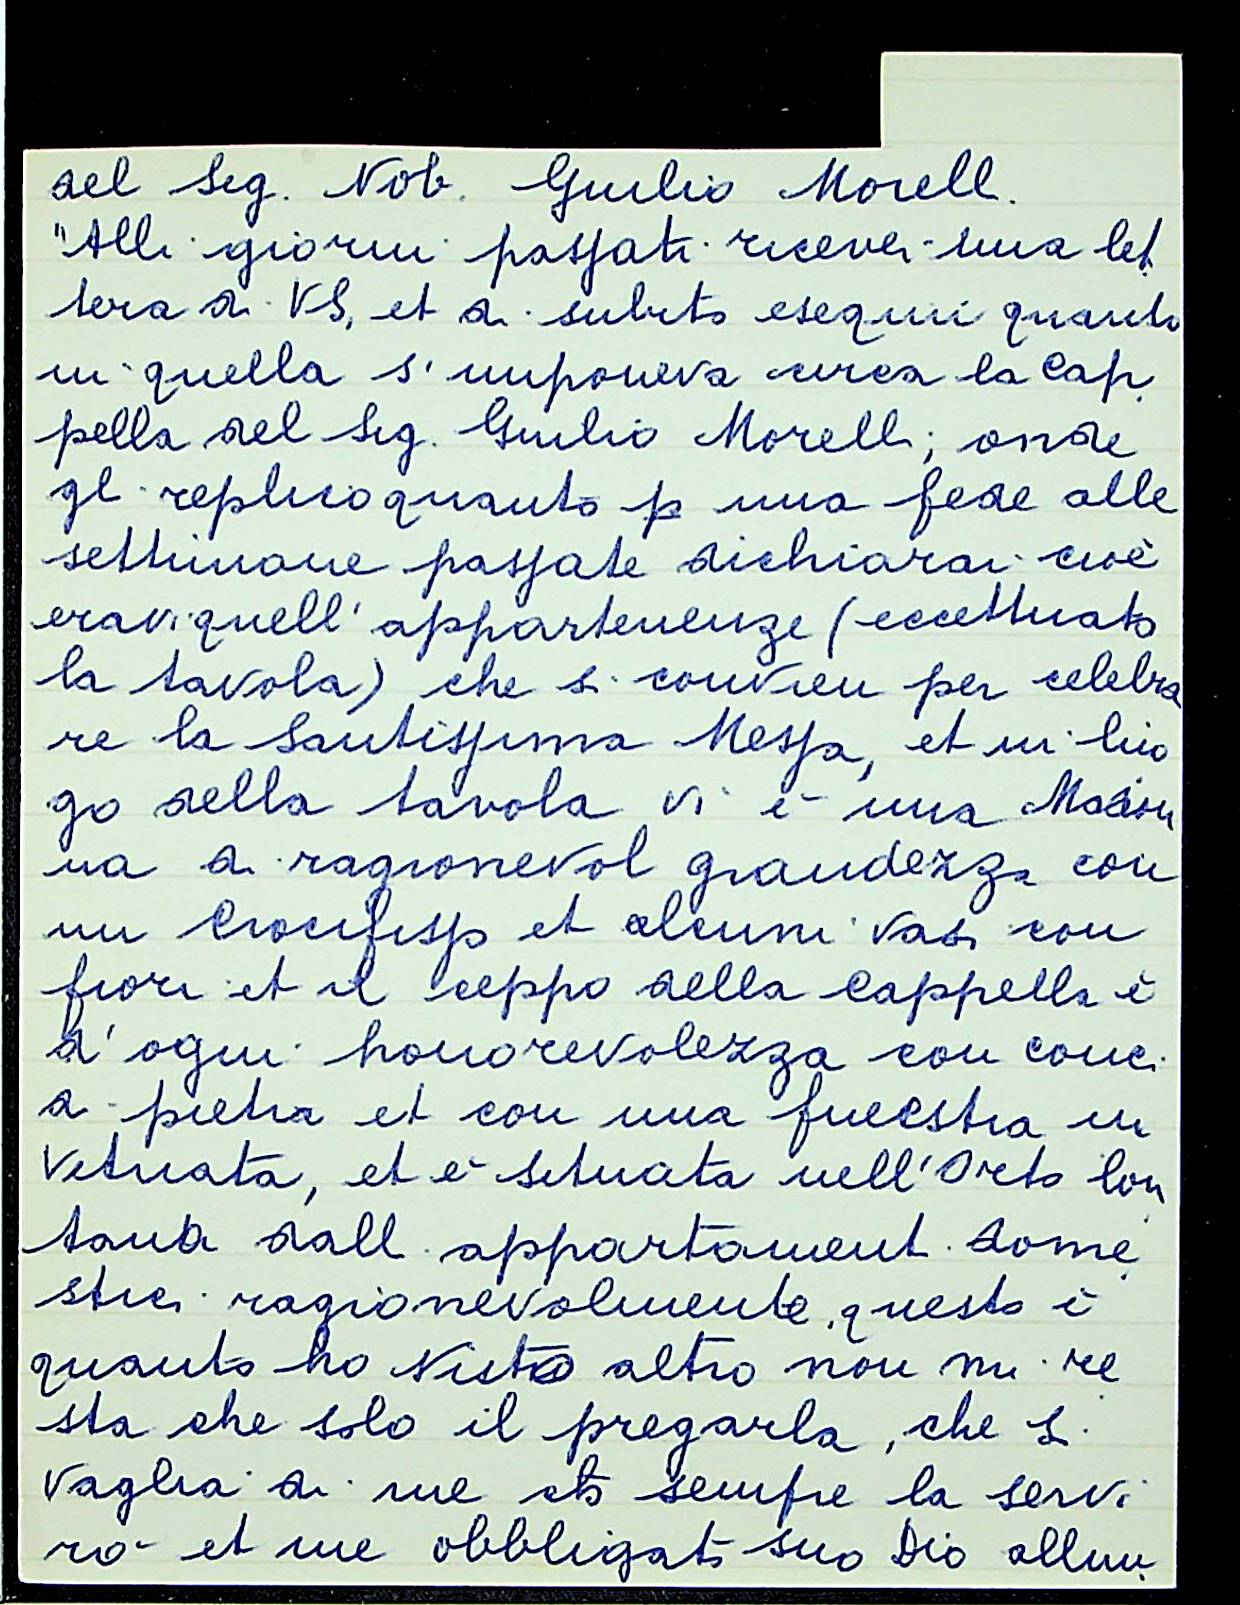 del Sig. Nob. Giulio Morelli.
"Alli giorni passati ricevei una let
tera di VS, et di subito eseguii quanto
in quella s'imponeva circa la Cap
pella del Sig. Giulio Morelli; onde
gl replico quanto p una fede alle
settimane passate dichiarai cioè
eravi quell'appartenenze (eccettuato
la tavola) che si convien per celebra
re la Santissima Messa, et in luo
go della tavola vi è una Madon
na di ragionevol grandezza con
un Crocifisso et alcuni vasi con
fiori et il ceppo della Cappella è
d'ogni honorevolezza con conci
di pietra et con una finestra in
Vetriata, et è situata nell'Orto lon
tana dall appartamenti dome
stici ragionevolmente, questo è
quanto ho visto altro non mi re
sta che solo il pregarla, che si
vaglia di me sempre la servi
rò et me obbligat suo Dio